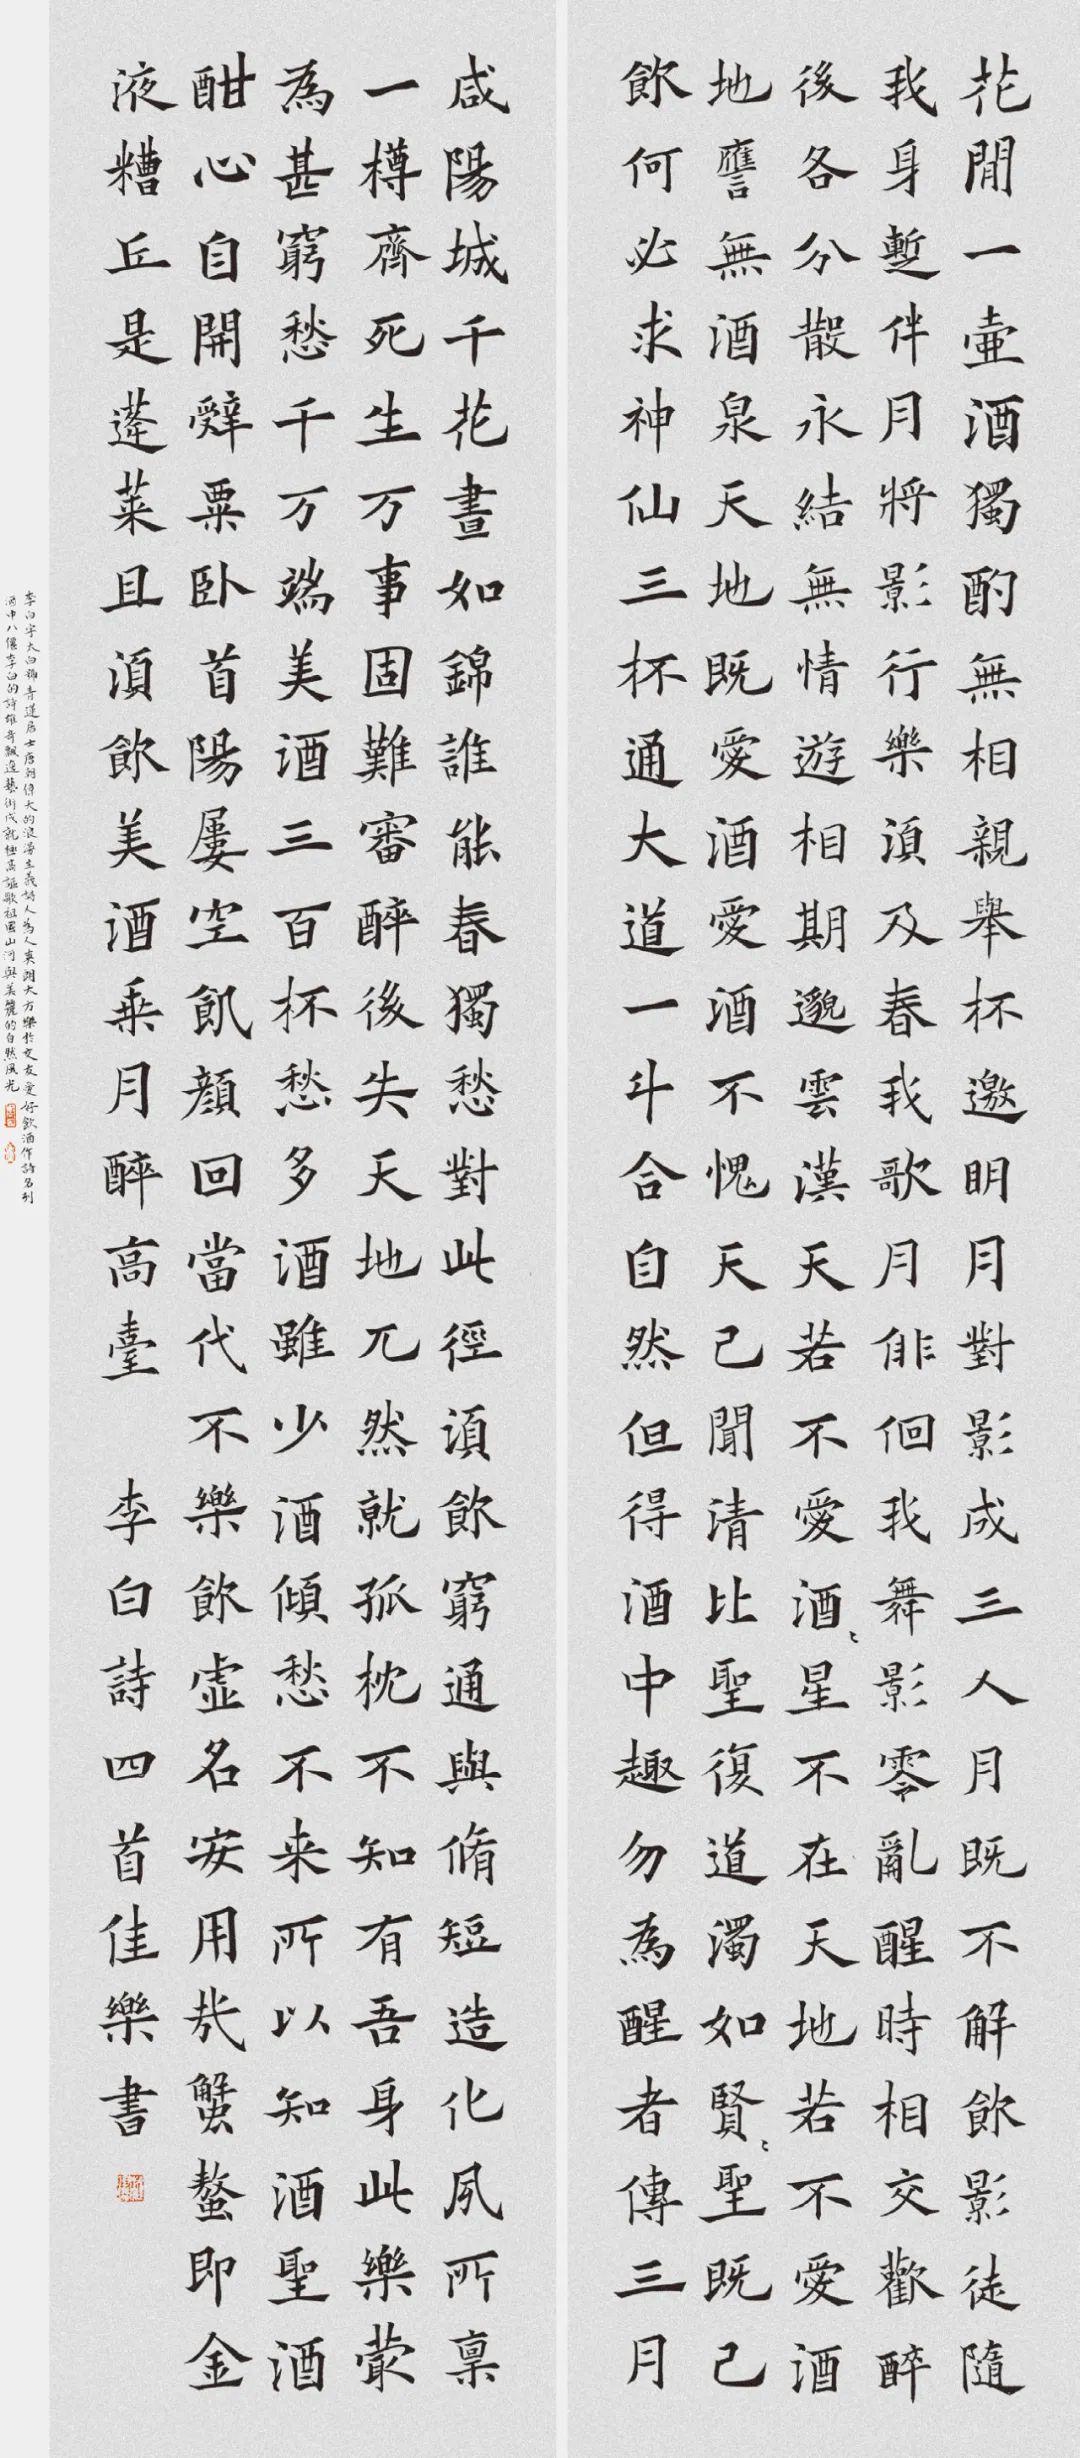 花間一壷酒獨酌無相親舉杯邀明月對影成三人月既不解飲影徒隨
我身暫伴月將影行樂須及春我歌月俳佪我舞影零亂醒時相交歡醉
後各分散永結無情遊相期邈雲漢天若不愛酒〻星不在天地若不愛酒
地譍無酒泉天地既愛酒愛酒不愧天已聞清比聖復道濁如賢〻聖既已
飲何必求神仙三杯通大道一斗合自然但得酒中趣勿為醒者傳三月
咸陽城千花晝如錦誰能春獨愁對此徑須飲窮通與脩短造化夙所稟
一樽齊死生万事固難審醉後失天地兀然就孤枕不知有吾身此樂㝡
為甚窮愁千万端美酒三百杯愁多酒雖少酒傾愁不来所以知酒聖酒
酣心自開辤粟卧首陽屢空飢顏回當代不樂飲虛名安用㢤蟹螯即金
液糟丘是蓬莱且須飲美酒乗月醉高臺 李白詩四首佳樂書
李白字太白号青蓮居士唐朝偉大的浪漫主義詩人為人爽朗大方樂於交友愛好飲酒作詩名列
酒中八僊李白的詩雄奇飄逸藝術成就極高謳歌祖國山河與美麗的自然風光